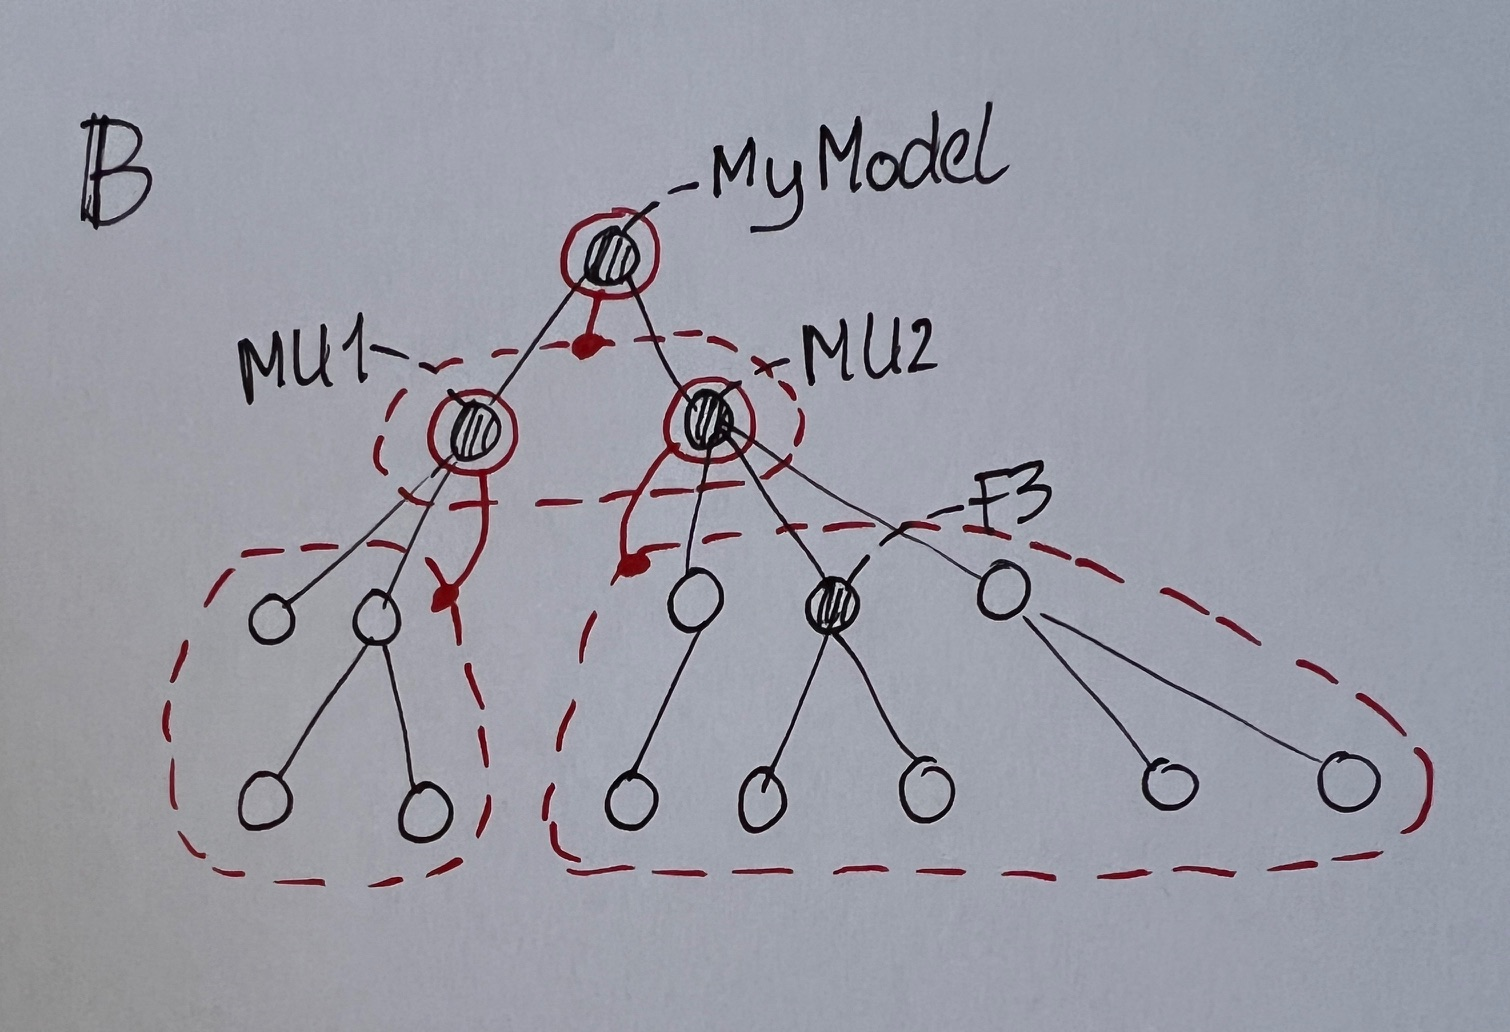 B
MyModel
MU1
MU2
F3